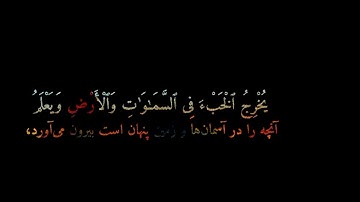 يُخْرِجُ ٱلْخَبْءَ فِى ٱلسَّمَـٰوَٰتِ وَٱلْأَرْضِ وَيَعْلَمُ
آنچه را در آسمان‌ها و زمین پنهان است بیرون می‌آورد،